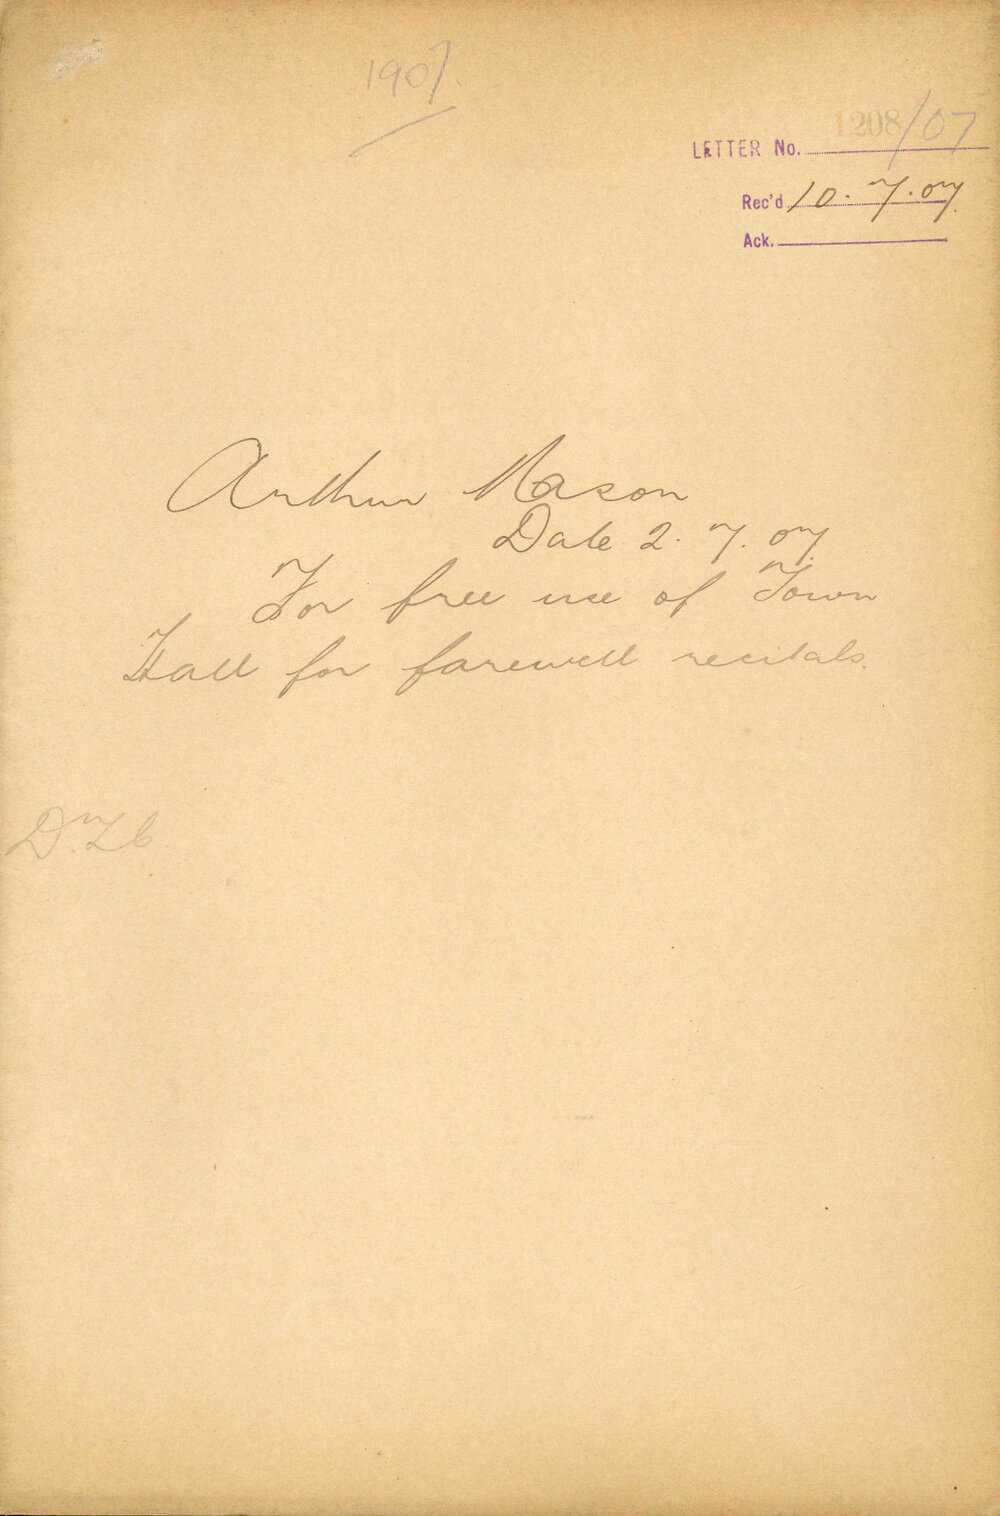 1907.
LETTER No. 1208/07
Rec'd 10.7.07.
Ack.
Arthur Mason
Date 2.7.07.
For free use of Town
Hall for farewell recitals.